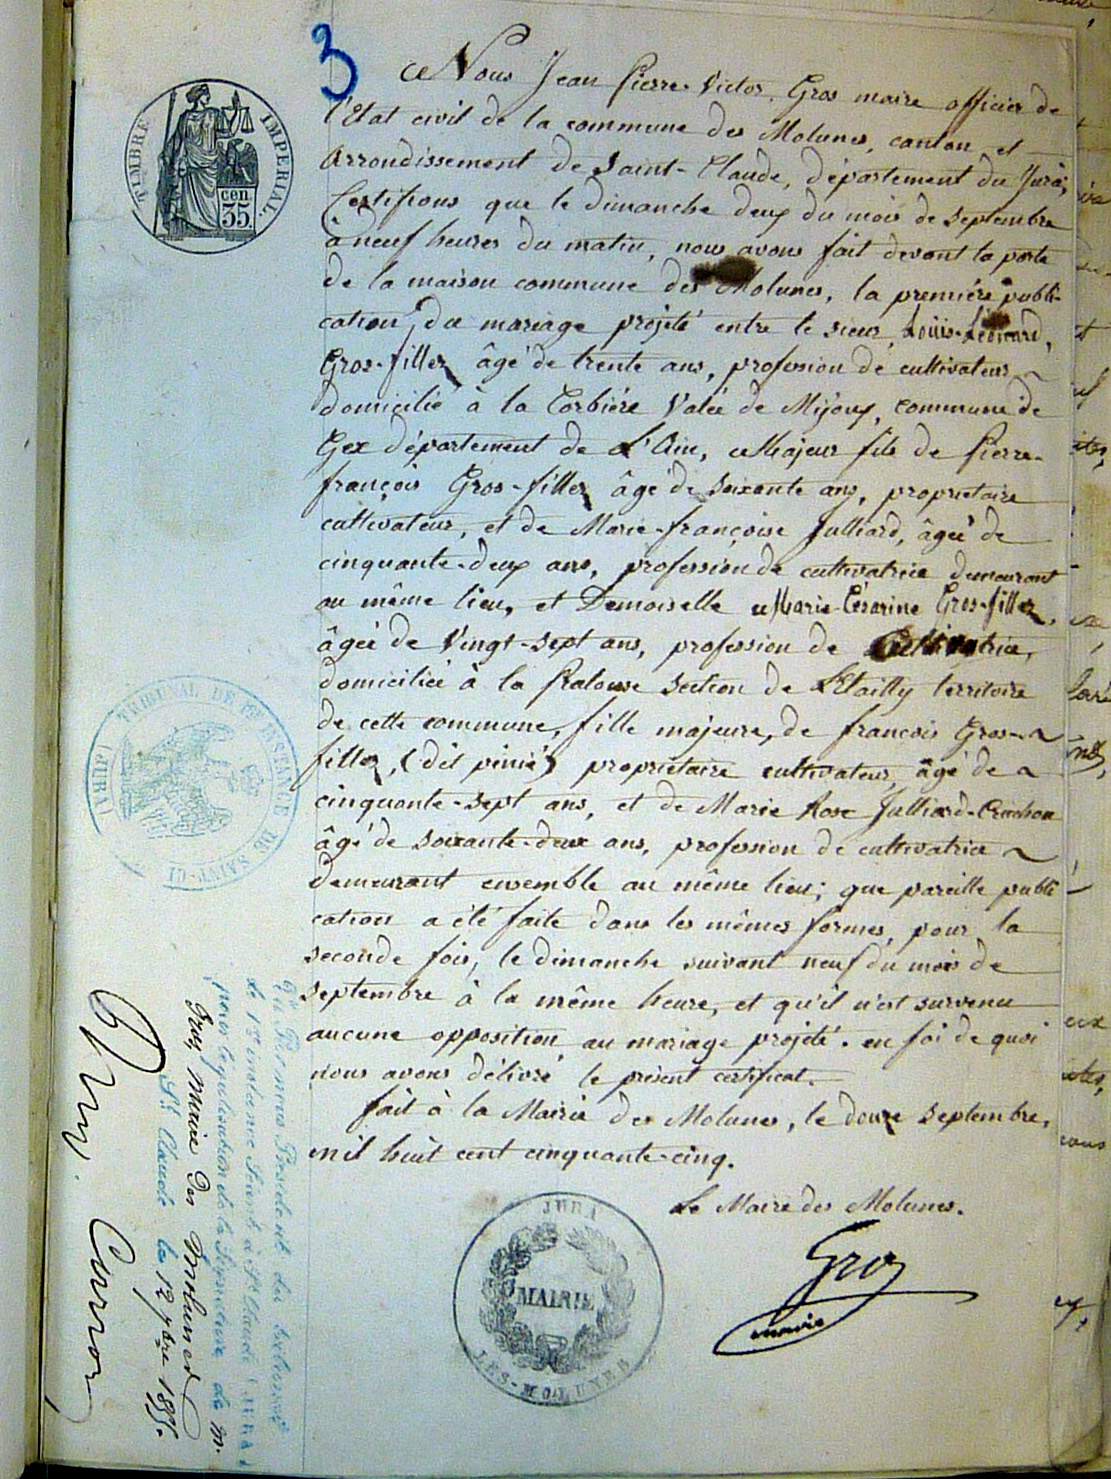 3
Nous Jean Pierre Victor Gros maire officier de
l'Etat civil de la commune des Molunes, canton et
arrondissement de Saint-Claude, département du Jura,
Certifions que le dimanche deux du mois de septembre
à neuf heures du matin, nous avons fait devant la porte
de la maison commune des Molunes, la première publi-
cation, du mariage projeté entre le sieur Loüis-Léonard,
Gros-fillez âgé de trente ans, profession de cultivateur
domicilié à la Corbière Valée de Mijoux, commune de
Gex département de L'Ain, Majeur fils de Pierre-
françois Gros-fillez âgé de soixante ans, proprietaire
cultivateur, et de Marie-françoise Julliard, âgée de
cinquante-deux ans, profession de cultivatrice demeurant
au même lieu, et Demoiselle Marie-Césarine Gros-fillez,
âgée de Vingt-sept ans, profession de Cultivatrice,
domiciliée à la section de territoire
de cette commune, fille majeure, de francois Gros-
fillez, (dit pinié) proprietaire cultivateur, âgé de
cinquante-sept ans, et de Marie Rose Julliard-
âgé de soixante-deux ans, profession de cultivatrice
demeurant ensemble au même lieu; que pareille publi
cation a été faite dans les mêmes formes, pour la
seconde fois, le dimanche suivant neuf du mois de
septembre à la même heure, et qu'il n'est survenu
aucune opposition au mariage projeté. en foi de quoi
nous avons délivré le présent certificat.
fait à la Mairie des Molunes, le douze septembre,
mil huit cent cinquante-cinq.
Le Maire des Molunes.
Gros
maire
TIMBRE IMPERIAL.
cen. 35.
TRIBUNAL DE 1ERE INSTANCE DE SAINT-CL (JURA)
JURA
MAIRIE
LES-MOLUNES
Vu Par nous Président du tribunal
de 1re instance séant à St Claude (JURA)
pour légalisation de la Signature de m.
Gros, Maire des Molunes
St Claude le 12 7bre 1855.